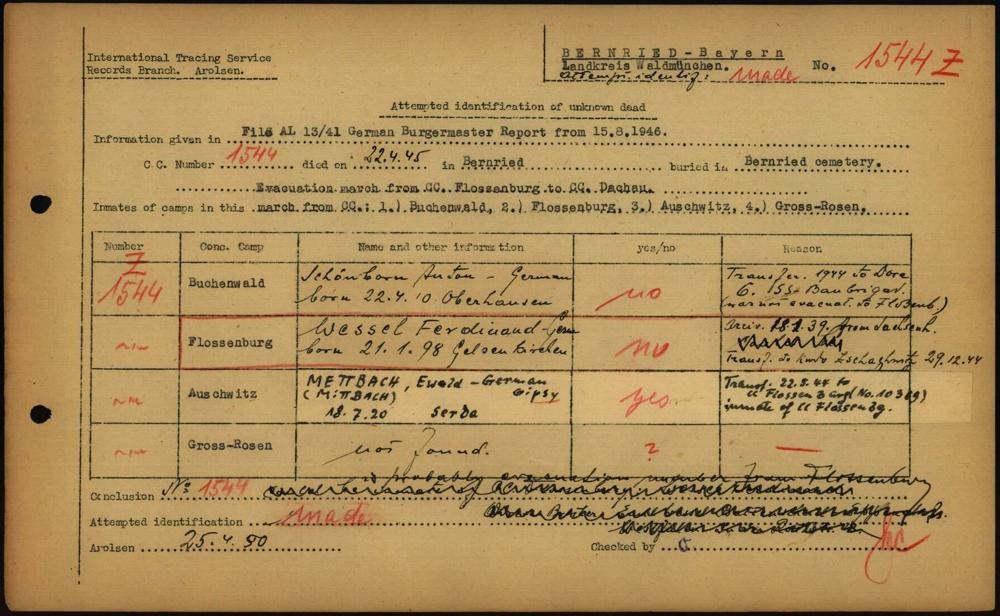 International Tracing Service
Records Branch. Arolsen.
BERNRIED-Bayern
Landkreis Waldmünchen. No. 1544 Z
Attempt. identif: made
Attempted identification of unknown dead
Information given in File AL 13/41 German Burgermaster Report from 15.8.1946.
C.C. Number 1544 died on 22.4.45 in Bernried buried in Bernried cemetery.
Evacuation march from CC. Flossenburg to CC. Dachau.
Inmates of camps in this march from CC.: 1.) Buchenwald, 2.) Flossenburg, 3.) Auschwitz, 4.) Gross-Rosen.
Number Conc. Camp Name and other information yes/no Reason
Z
1544 Buchenwald Schönborn Anton - German
born 22.4.10 Oberhausen no
Transfer. 1944 to Dora
6. SS Baubrigad.
(was not evacuat. to Floßenb)
Flossenburg Wessel Ferdinand - Germ
born 21.1.98 Gelsenkirchen no
arriv. 18.1.39. from Sachsenh.
Transf. to kdo Zschachwitz 29.12.44
Auschwitz METTBACH, Ewald - German
(MiTTBACH) Gipsy
18.7.20 Serba yes
Transf. 22.8.44 to
CC Flossenbg (No. 10369)
inmate of CC Flossenbg.
Gross-Rosen not found. ? —
is probably evacuation number from Flossenburg
Conclusion No 1544
Attempted identification made
Arolsen 25.4.50 Checked by